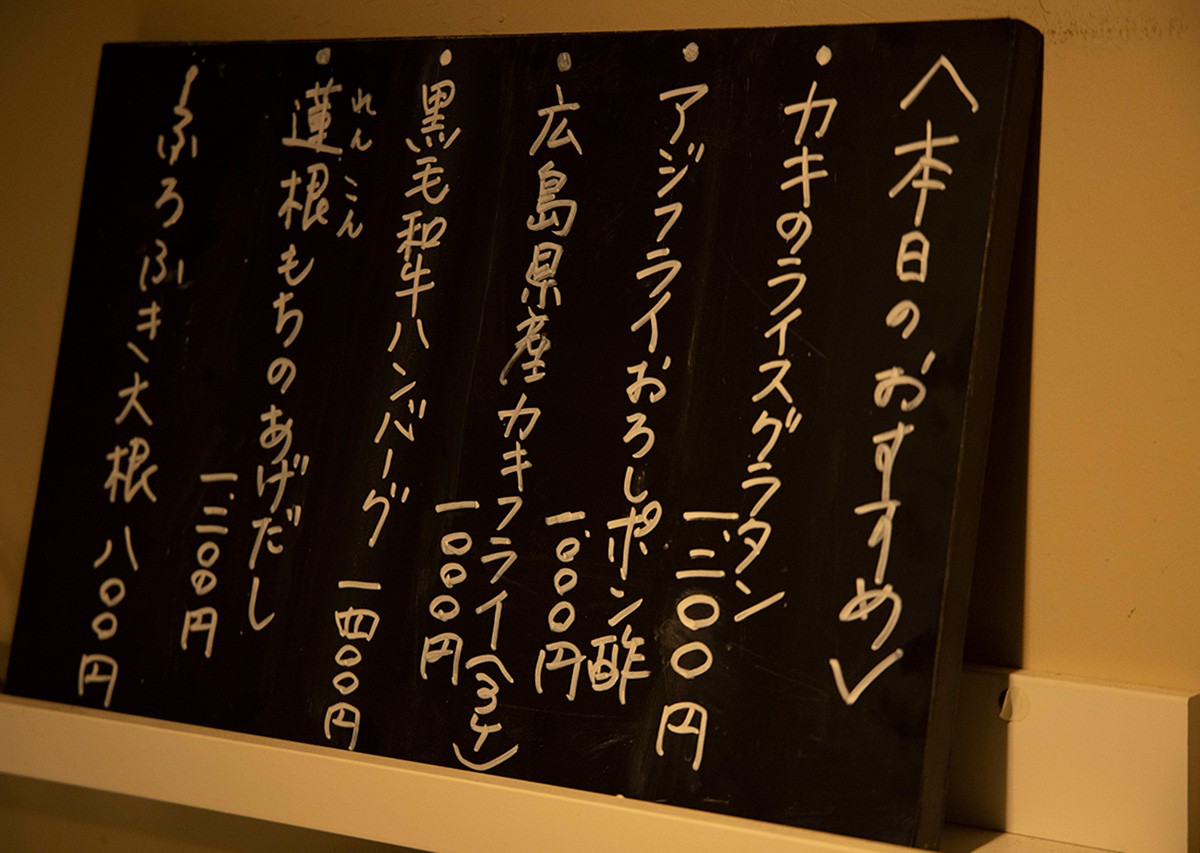 〈本日のおすすめ〉
・カキのライスグラタン
一二〇〇円
・アジフライおろしポン酢
一〇〇〇円
・広島県産カキフライ(3ケ)
一〇〇〇円
・黒毛和牛ハンバーグ 一四〇〇円
・蓮根もちのあげだし
れんこん
一二〇〇円
・ふろふき大根 八〇〇円